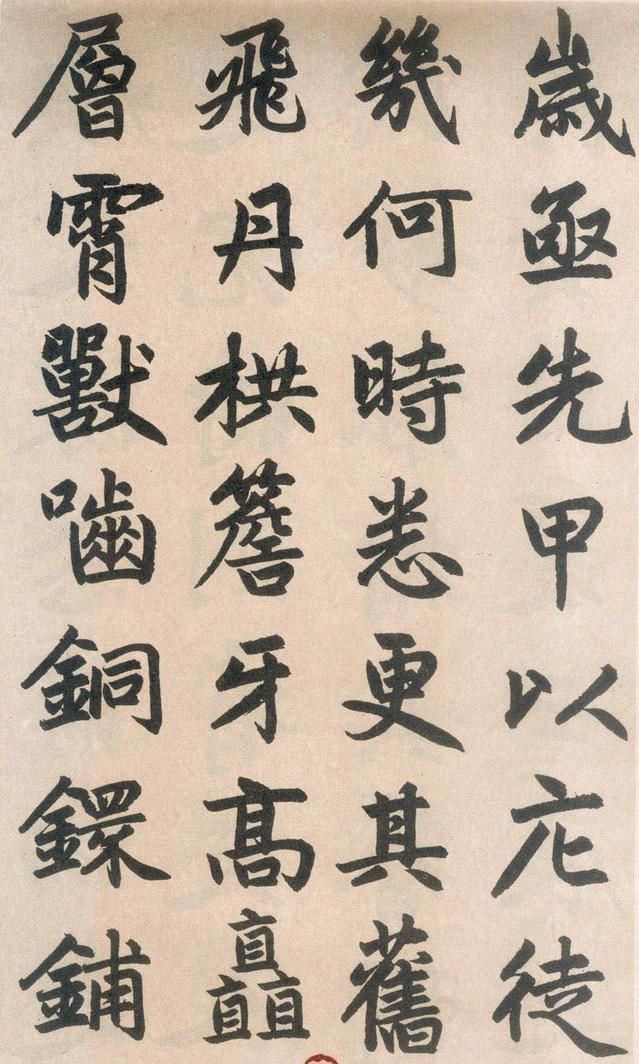 歲亟先甲以庀徒
幾何時悉更其舊
飛丹栱簷牙高矗
層霄獸嚙銅鐶鋪